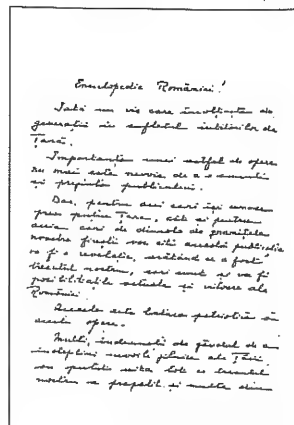 Enciclopedia României!
Iată un vis care încolțește de
generații în sufletul iubitorilor de
Țară.
Importanța unei astfel de opere
nu mai este nevoie de a o sublinia
și prezinta publicului.
Dar, pentru cei cari își cunosc
prea puțin Țara, cât și pentru
aceia cari de dincolo de granițele
noastre firești vor citi această publicație
va fi o revelație, arătând ce a fost
trecutul nostru, cari sunt și va fi
posibilitățile actuale și viitoare ale
României.
Aceasta este latura patriotică în
această operă.
Mulți, îndemnați de gândul de a
nevoile zilnice ale Țării
vor putea uita tot ce trecutul
nostru a pregătit și multe din